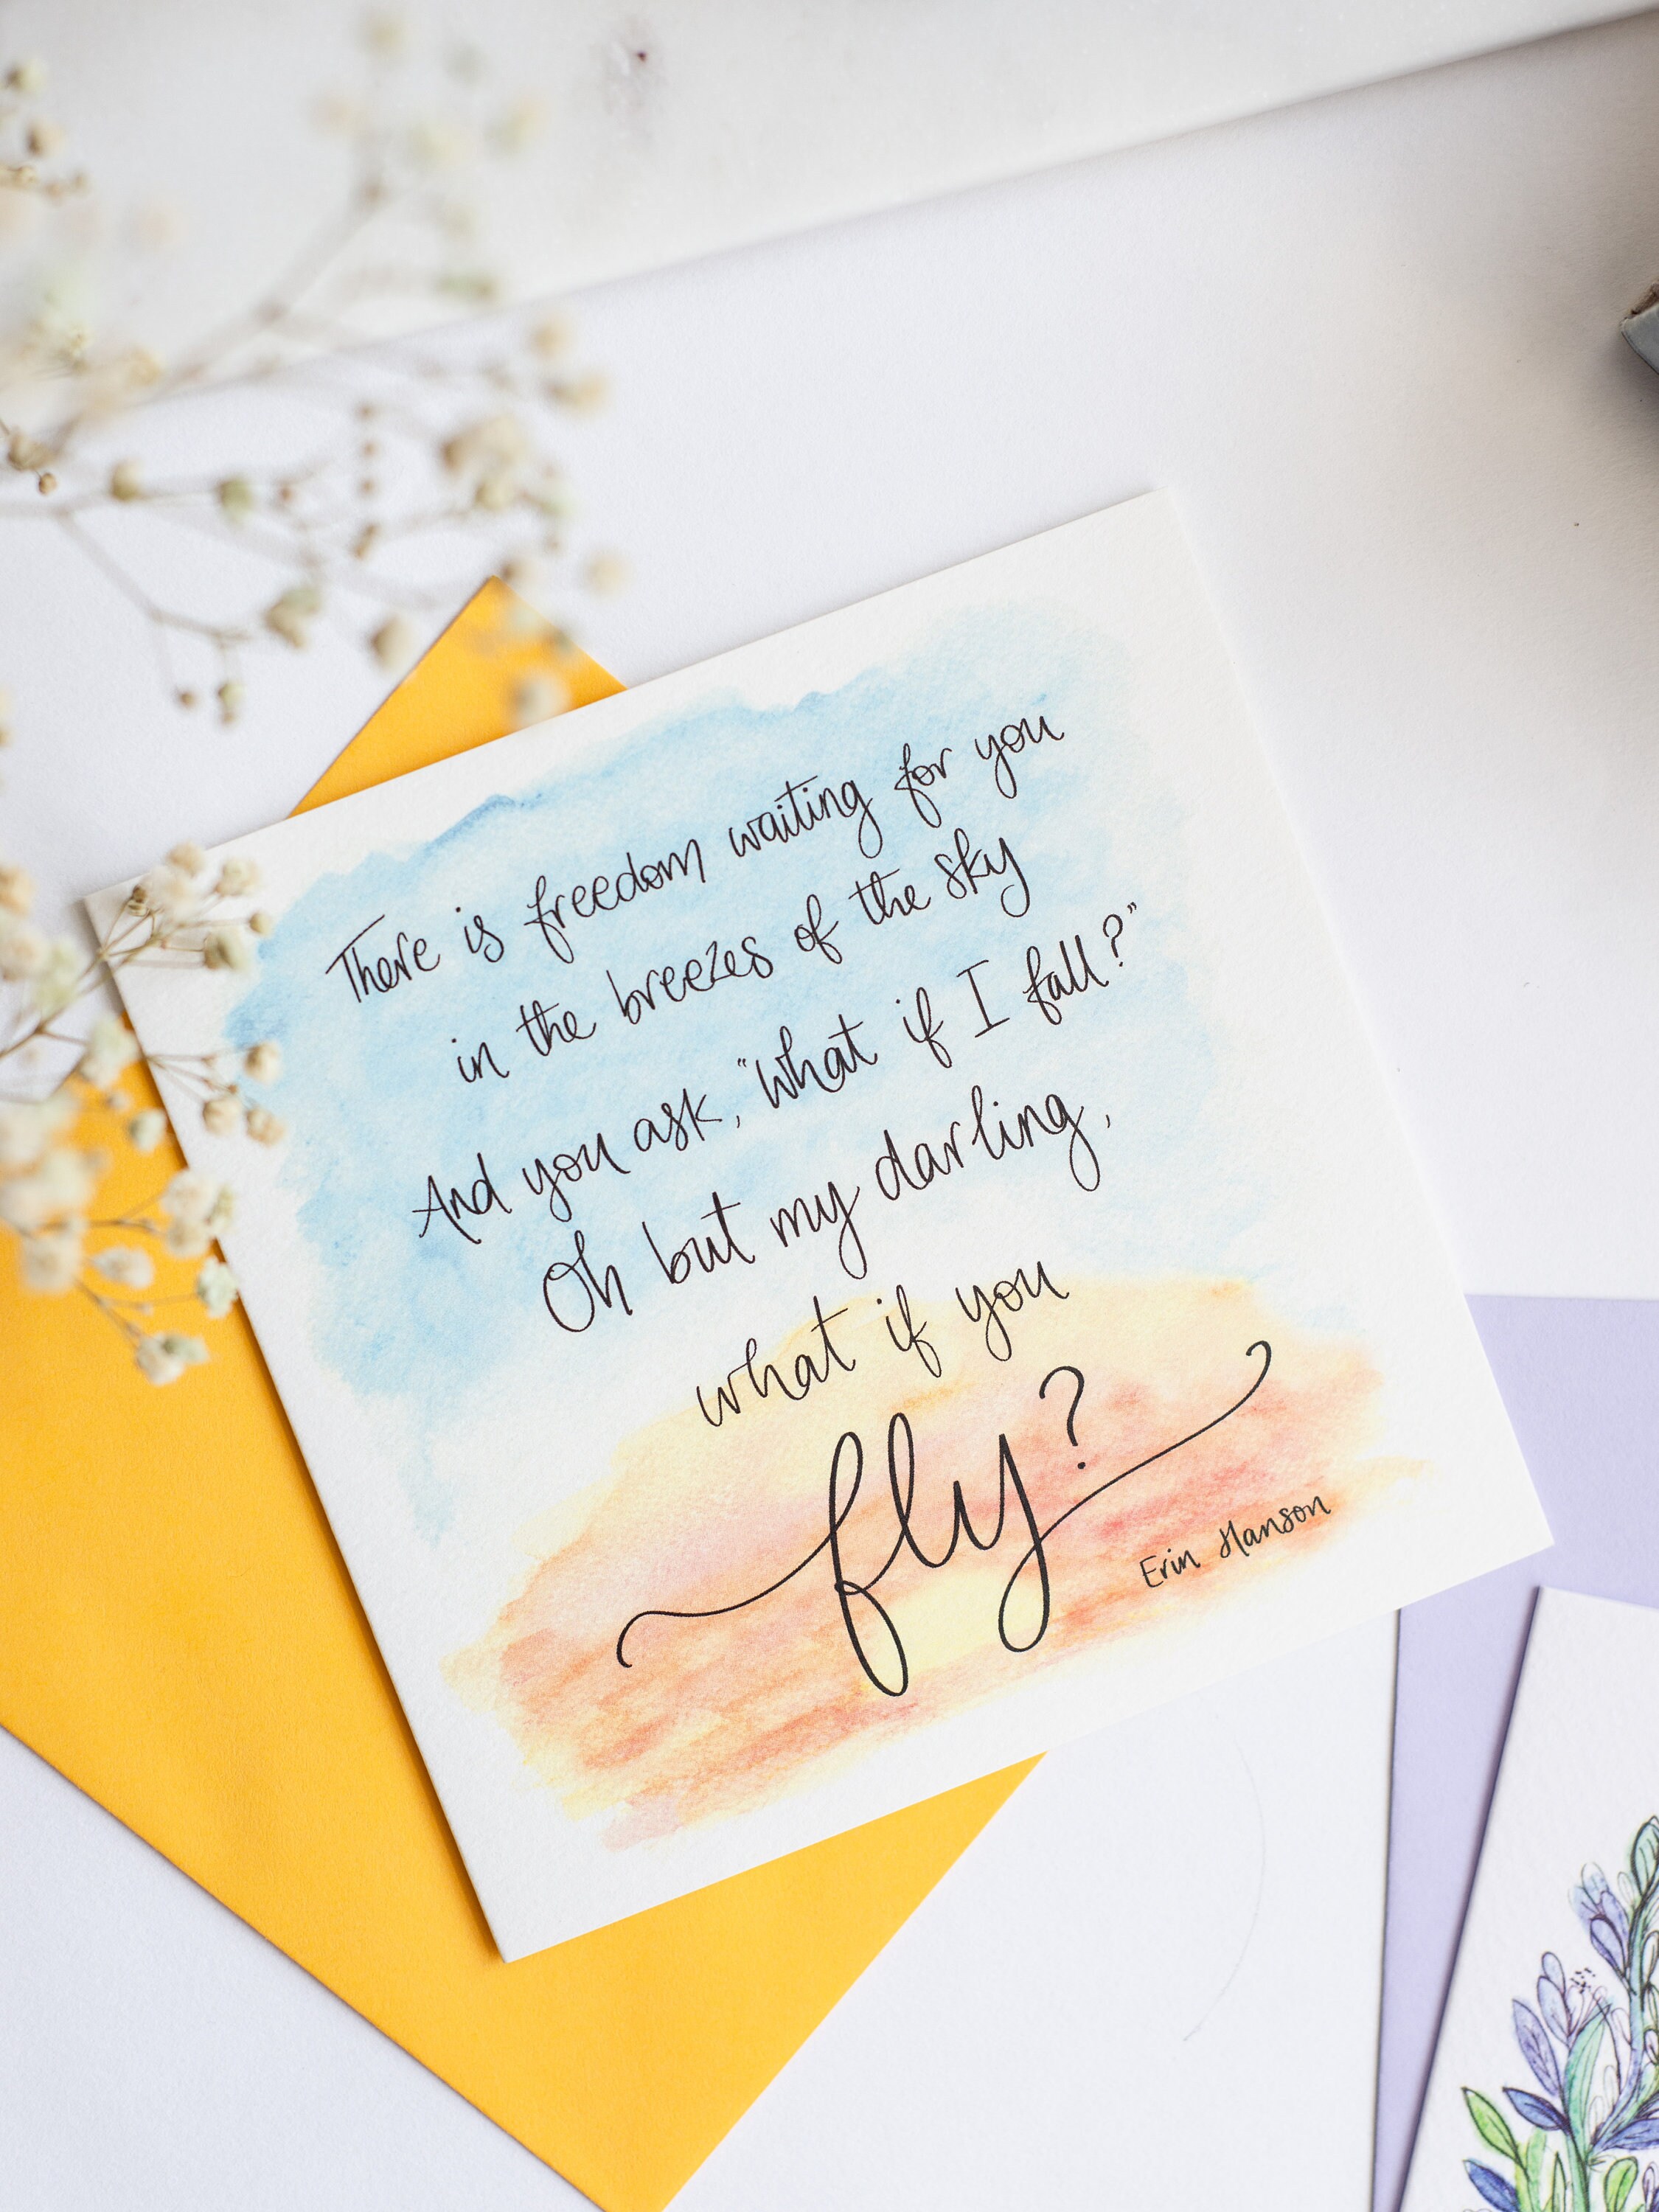 There is freedom waiting for you
in the breezes of the sky
And you ask, "What if I fall?"
Oh but my darling,
what if you
fly?
Erin Hanson